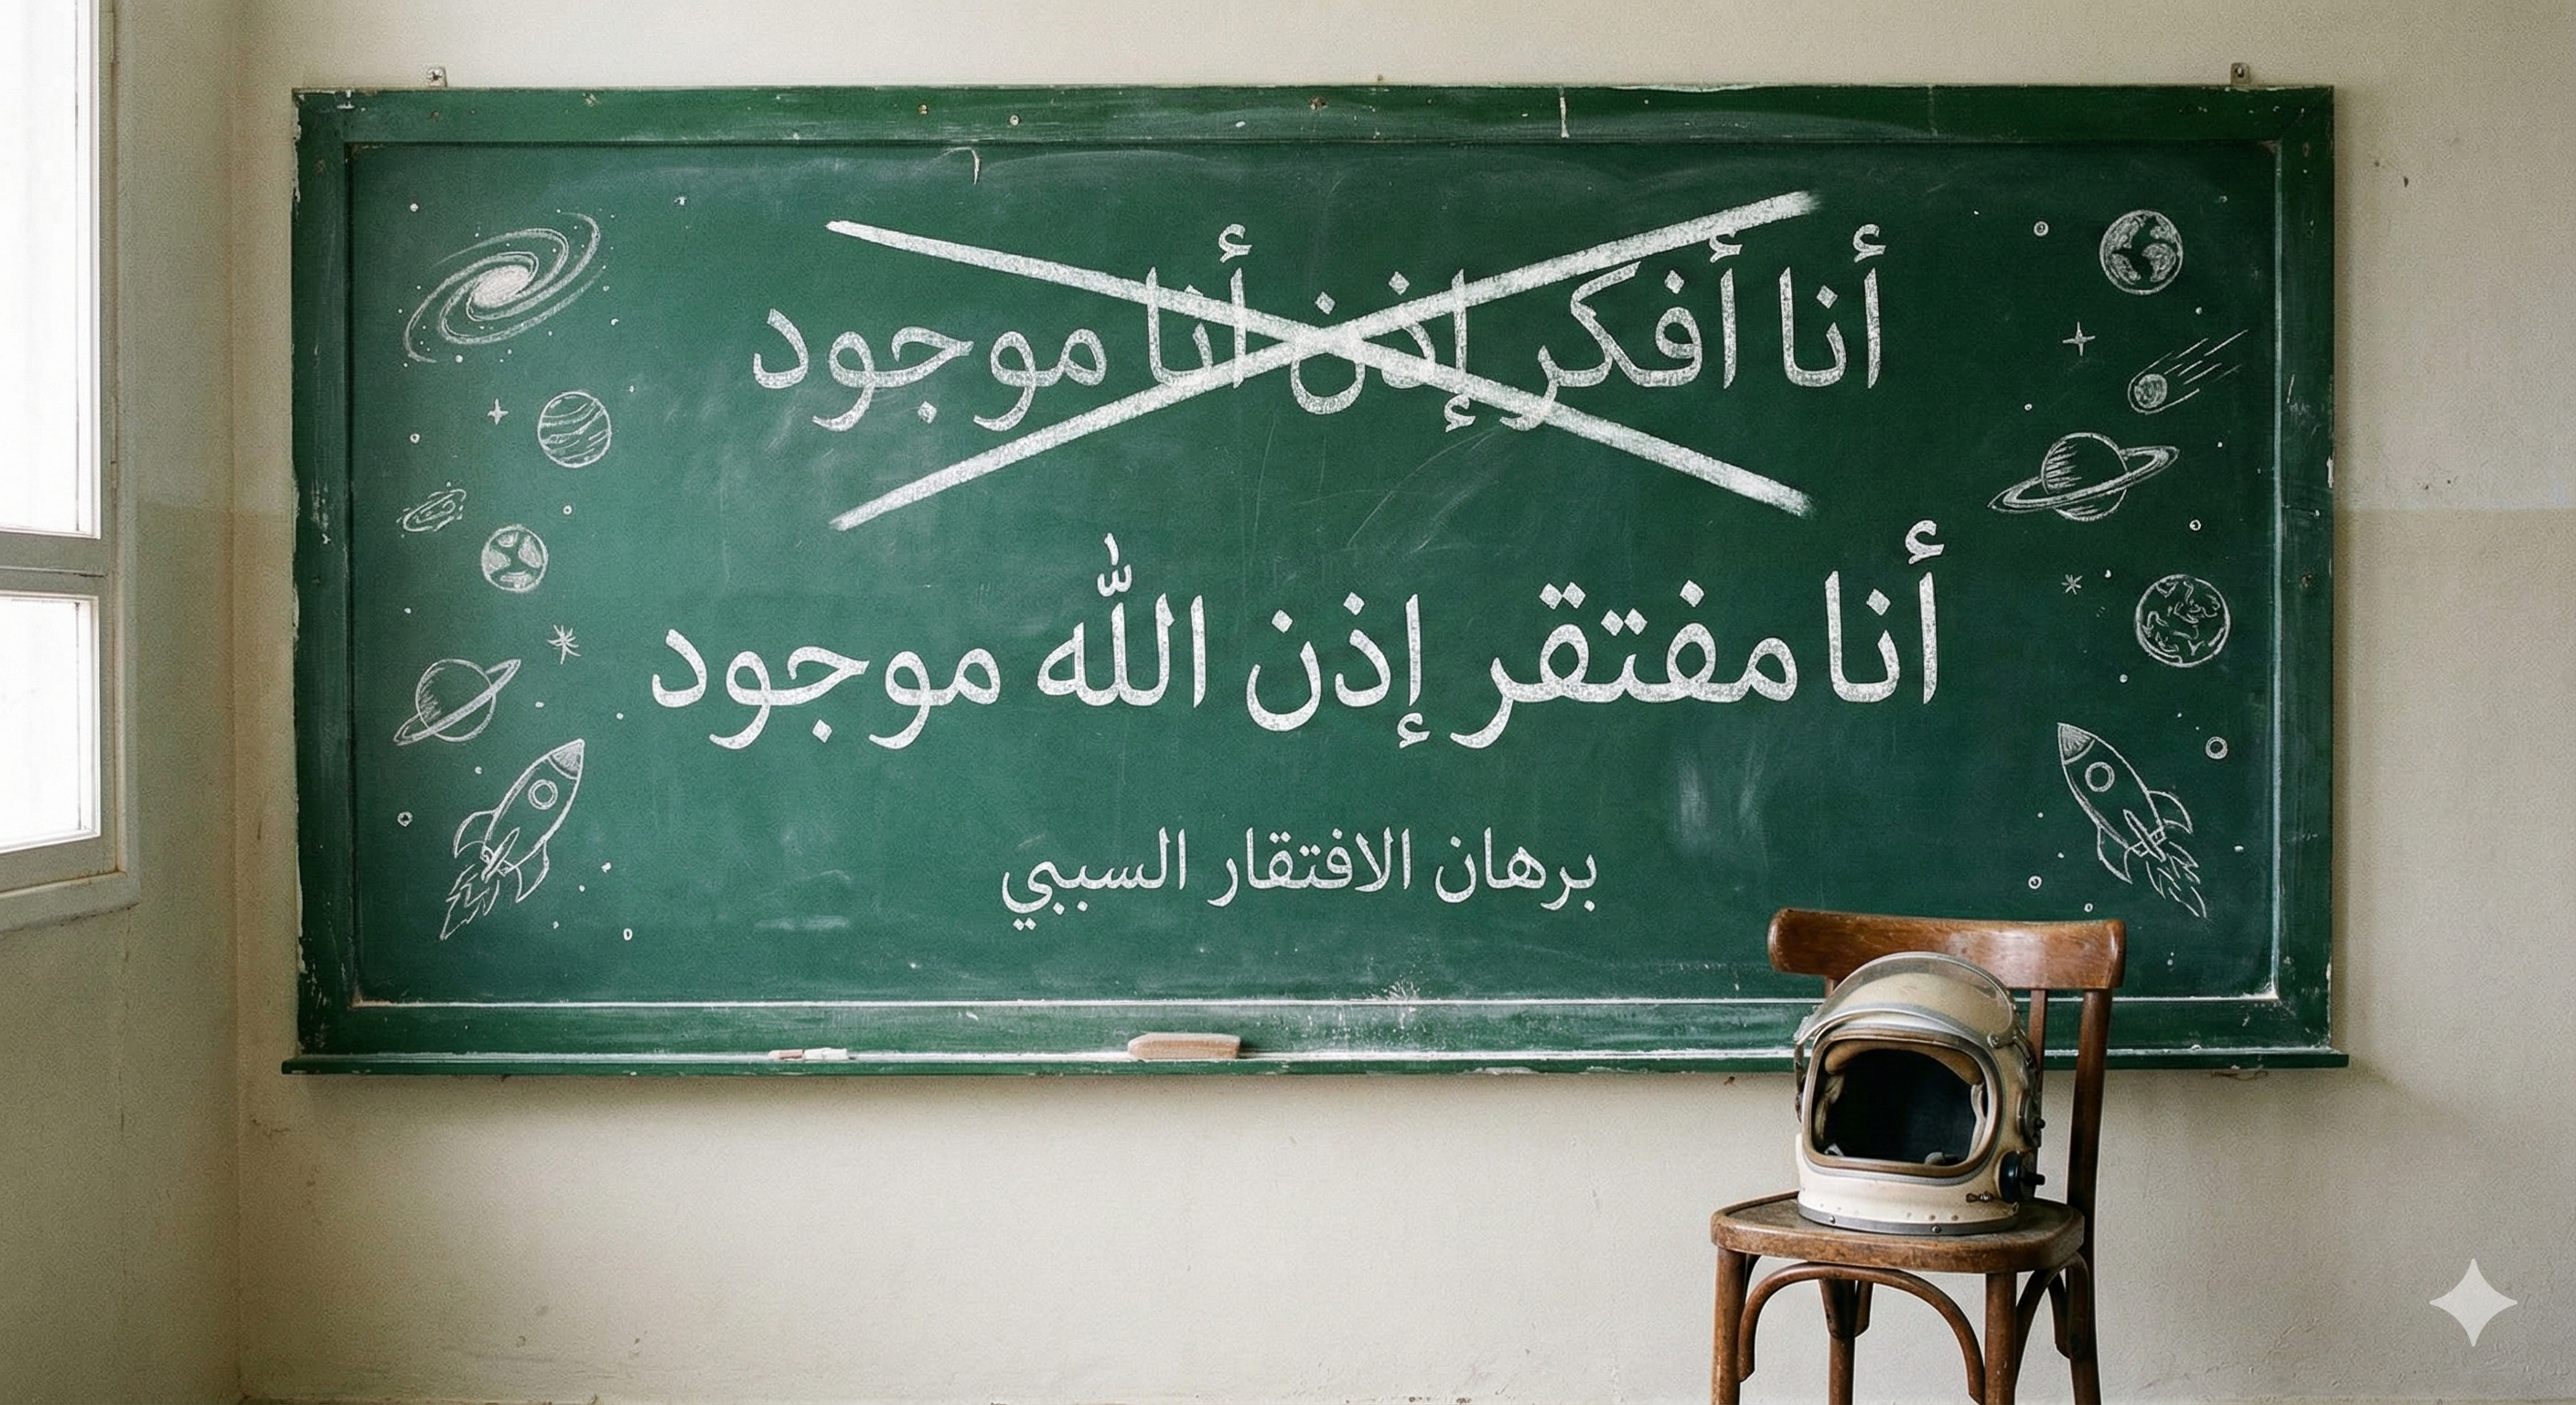 أنا أفكر إذن أنا موجود
أنا مفتقر إذن الله موجود
برهان الافتقار السببي